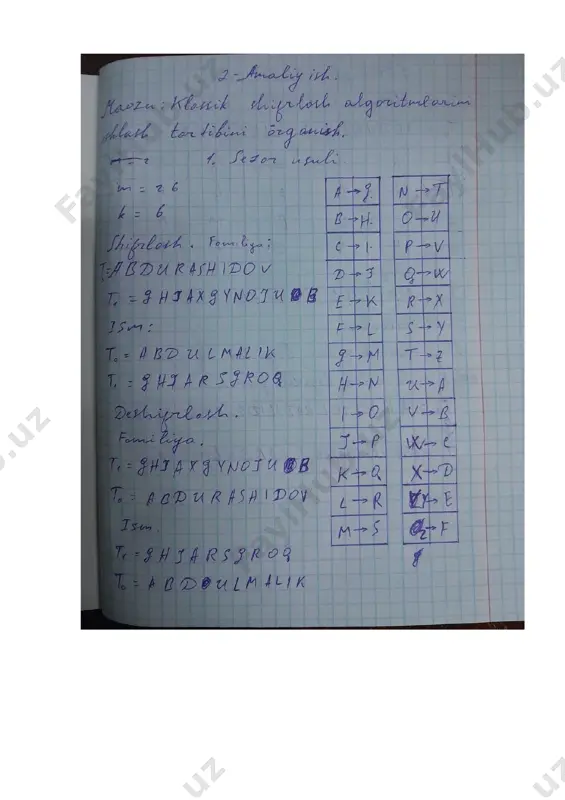 2-Amaliy ish.
Mavzu: Klassik shifrlash algoritmlarini
ishlash tartibini o'rganish.
1. Sezar usuli
m = 26
k = 6
Shifrlash. Familiya:
T₀=ABDURASHIDOV
T₁ = gHJAXgYNOJUB
Ism:
T₀ = ABDULMALIK
T₁ = gHJARSgROQ
Deshifrlash.
Familiya.
T₁ = gHJAXgYNOJUB
T₀ = ABDURASHIDOV
Ism
T₁ = gHJARSgROQ
T₀ = ABDULMALIK
A→g
B→H
C→I
D→J
E→K
F→L
g→M
H→N
I→O
J→P
K→Q
L→R
M→S
N→T
O→U
P→V
Q→W
R→X
S→Y
T→Z
U→A
V→B
W→C
X→D
Y→E
Z→F
FayllHub.uz